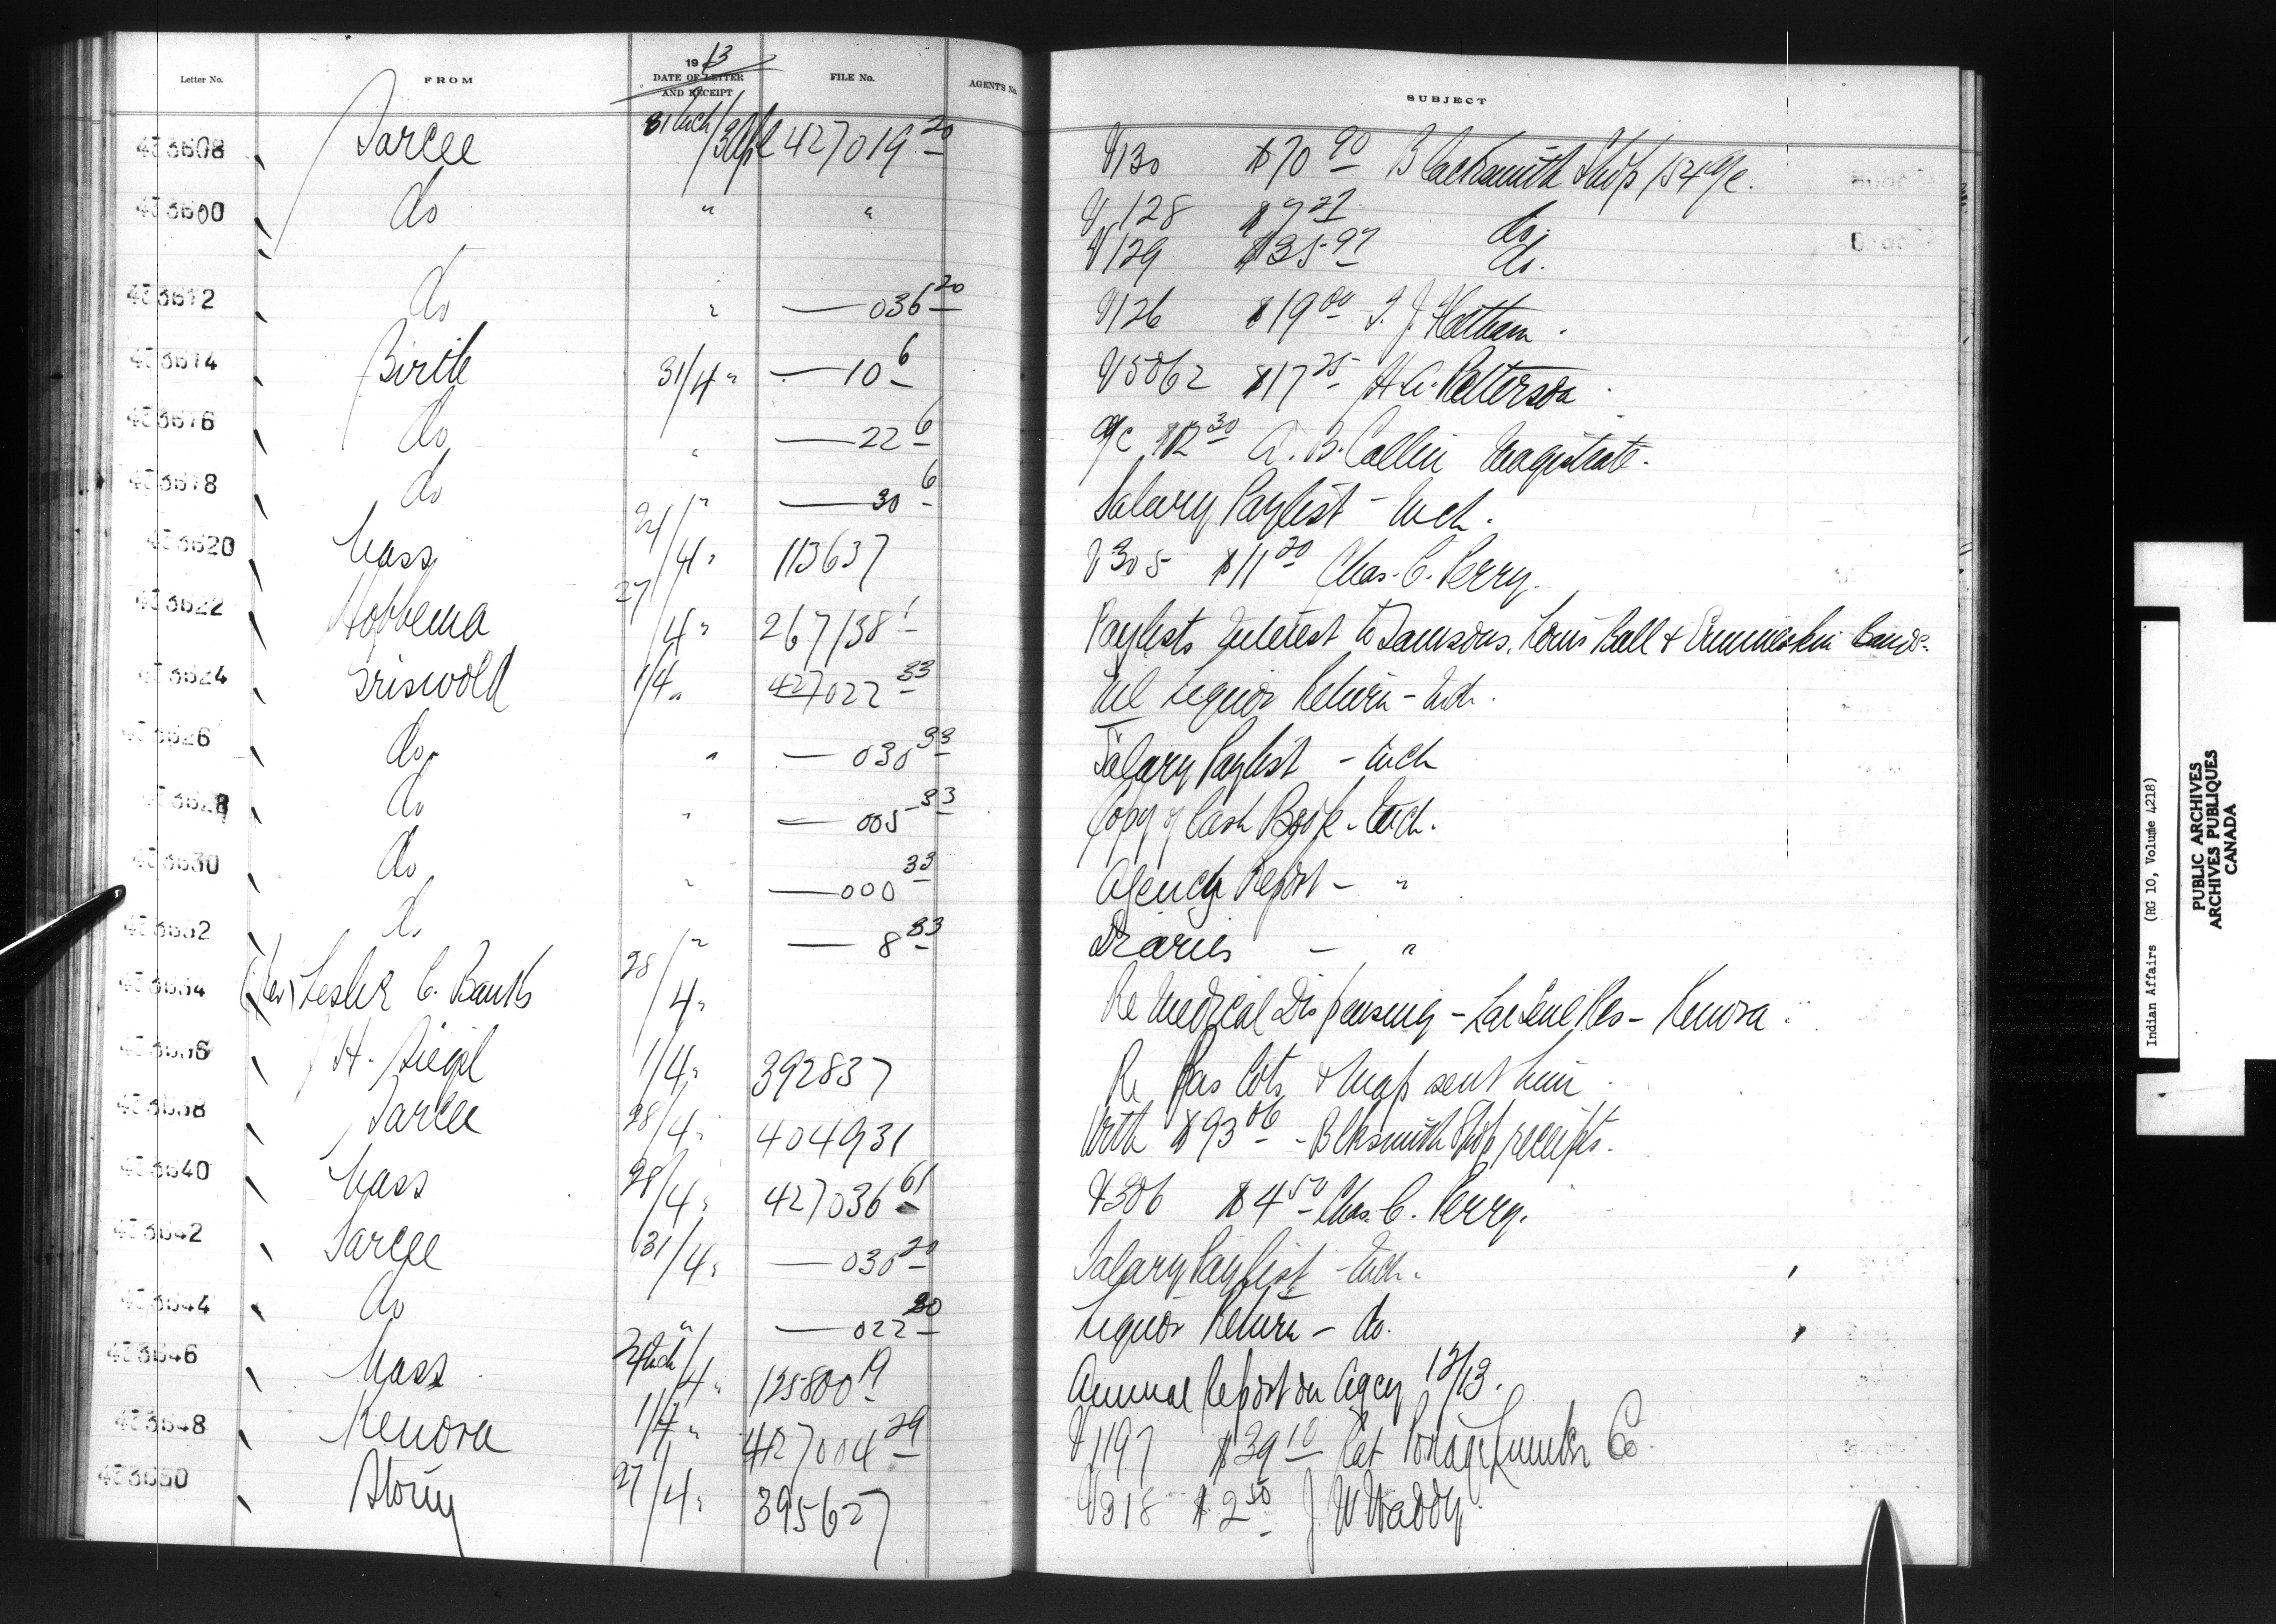 Letter No. FROM 1913 DATE OF LETTER AND RECEIPT FILE No. AGENT'S No. SUBJECT
433608 Sarcee 31 Mch/3 Apl 427019 20 V130 $70 90 Blacksmith Shop 154 a/c.
do " " V128 $7 27 do.
V129 $35 97 do.
433612 do " — 036 20 V126 $19 00
433614 Birtle 31/4 " — 10 6 V5062 $17 25 H. A. Patterson
433616 do " — 22 6 a/c $12 30 A. B. Magistrate.
433618 do " — 30 6 Salary Paylist - Mch.
433620 Mass 24/4 " 113637 V305 $11 20 Chas. C. Perry.
433622 Hobbema 27/4 " 267138 1 Paylists Interest to Samsons, Louis Bull & Ermineskin Bands.
433624 Griswold 1/4 " 427022 33 Nil Liquor Return - Mch.
433626 do. " — 030 33 Salary Paylist - Mch
433628 do " — 005 33 Copy of Cash Book - Mch.
433630 do " — 000 33 Agency Report - "
433632 do / " — 8 33 Diaries — "
433634 (Rev) Leslie C. Banks 28/4 " Re Medical Dispensing - Lac Seul Res - Kenora.
433636 H. Siegel 1/4 " 392837 Re Pas Lots & Map sent him.
433638 Sarcee 28/4 " 404931 With $93 06 - Blksmith Shop receipts.
433640 Mass 28/4 " 427036 61 V306 $4 50 Chas. C. Perry.
433642 Sarcee 31/4 " — 030 20 Salary Paylist - Mch.
433644 do " — 022 20 Liquor Return - do.
433646 Mass 24 Mch/4 " 125800 19 Annual Report on Agcy 12/13.
433648 Kenora 1/4 " 427004 29 V1197 $39 10 Rat Portage Lumber Co.
433650 Stony 27/4 " 395627 V318 $2 50 J. W. Waddy
Indian Affairs (RG 10, Volume 4218)
PUBLIC ARCHIVES
ARCHIVES PUBLIQUES
CANADA